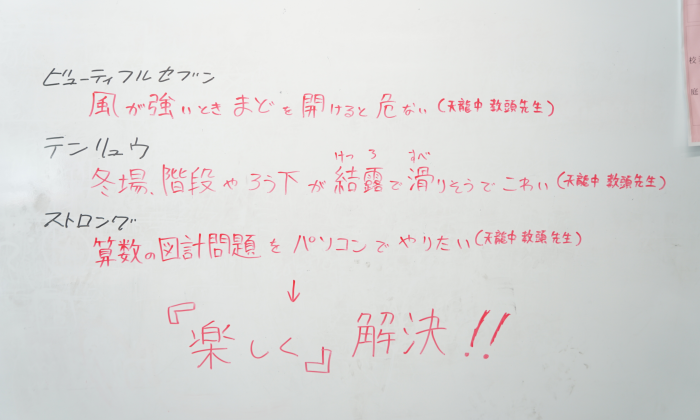 ビューティフルセブン
風が強いときまどを開けると危ない(天龍中 教頭先生)
テンリュウ
けつ ろ すべ
冬場、階段やろう下が結露で滑りそうでこわい(天龍中 教頭先生)
ストロング
算数の図計問題をパソコンでやりたい(天龍中 教頭先生)
↓
『楽しく』解決!!
校
庭